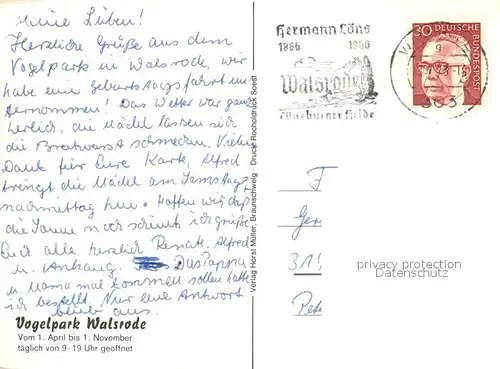 Meine Lieben!
Herzliche Grüße aus dem
Vogelpark in Walsrode, wir
habe eine Geburtstagsfahrt unt
ternommen! Das Wetter war ganz
herlich, die Mädel lassen sich
die Bratwurst schmecken. Vielen
Dank für Eure Karte, Alfred
bringt die Mädel am Samstag
nachmittag hin. Hoffen wir daß
die Sonne noch scheint, ich grüße
Euch alle herzlich Renate, Alfred
u. Anhang. Das Papera
u. Mama mal kommen sollen hatte
ich bestellt. Nur eine Antwort
blieb aus.
Vogelpark Walsrode
Vom 1. April bis 1. November
täglich von 9-19 Uhr geöffnet
Verlag Horst Müller, Braunschweig - Druck: Rocholdruck Soest
Hermann Löns
1866 1966
Walsrode
Lüneburger Heide
30 DEUTSCHE
BUNDESPOST
303
F
Ger
315
Pe
privacy protection
Datenschutz